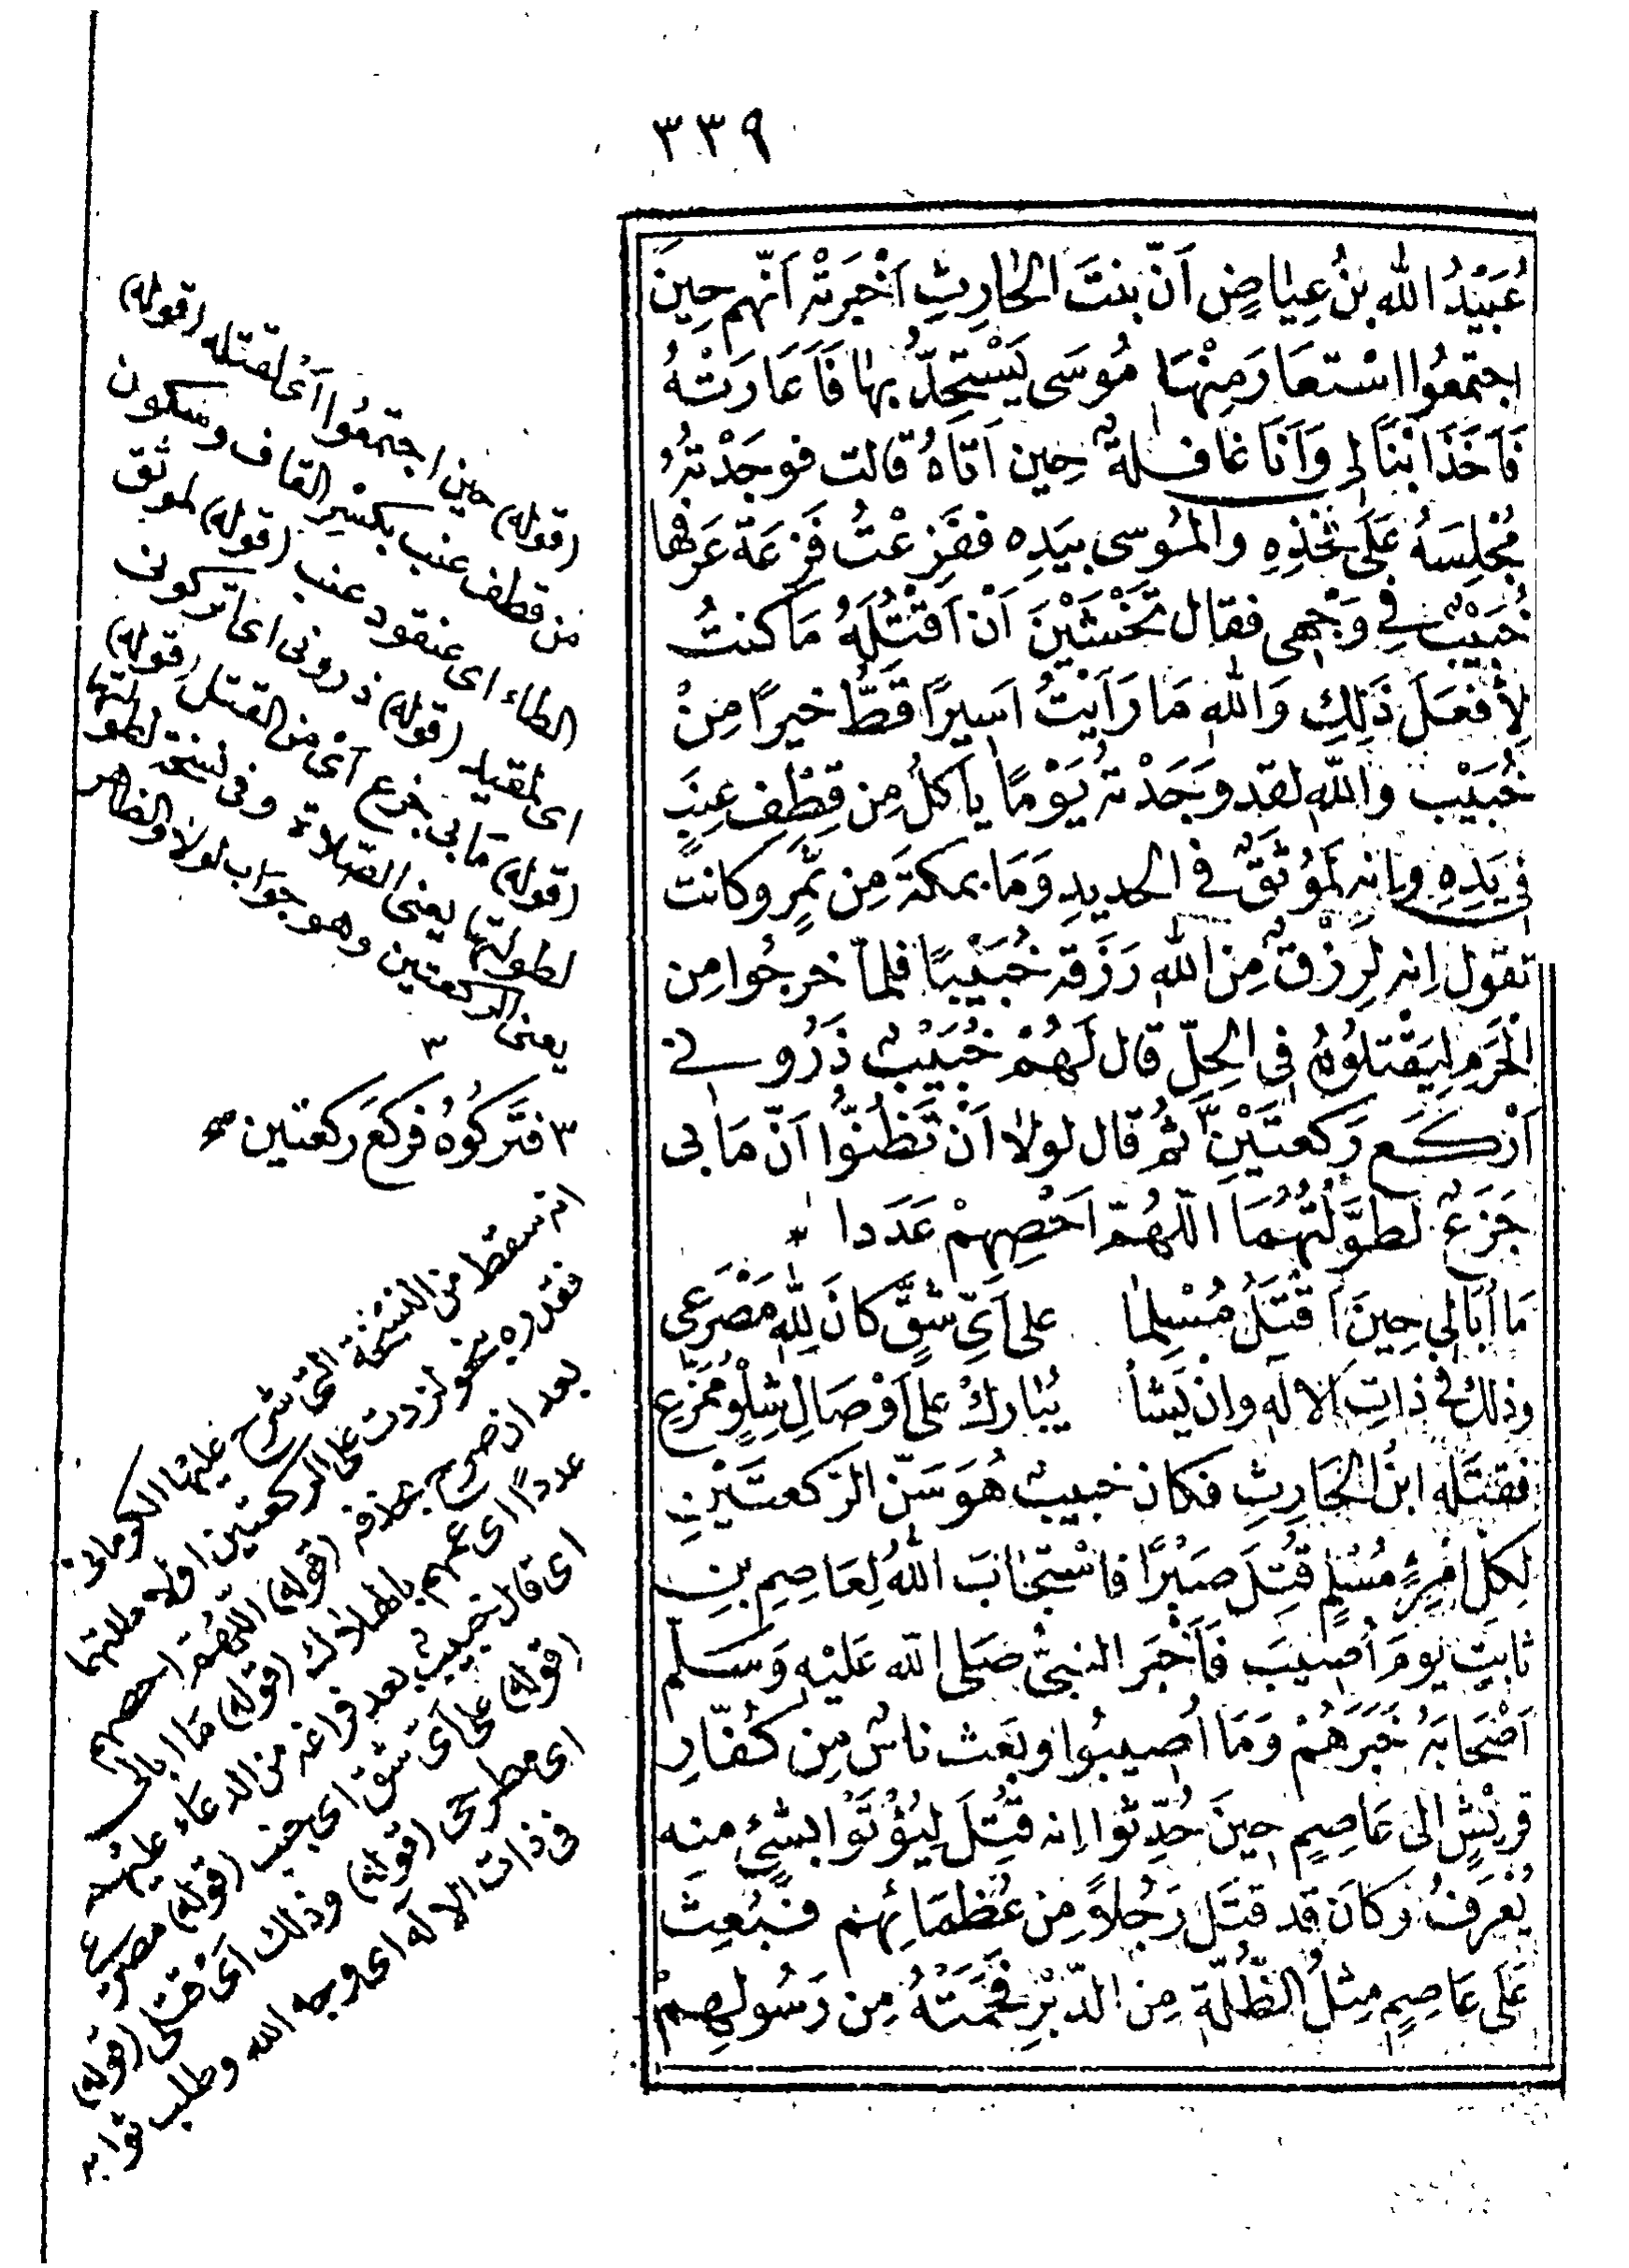 ٣٣٩
عُبَيْدُ الله بنُ عِيَاضٍ اَنّ بنتَ الحارِثِ اَخْبَرَتْهُ اَنّهم حِينَ
اجتمعُوا اسْتعَارَ مِنْهَا مُوسَى يَسْتَحِدُّ بها فَاَعَارَتْهُ
فَاَخَذَ ابْنًا لِي وَاَنَا غافلةٌ حِين اَتَاهُ قالت فوجَدْتُهُ
مُجْلِسَهُ عَلَى فَخِذِهِ والمُوسى بيَدِه ففَزِعْتُ فَزْعَةً عَرَفها
خُبَيْبٌ في وَجْهِى فقال تَخْشَيْنَ اَنْ اَقْتُلَهُ مَا كنتُ
لِاَفعَلَ ذَلِكِ وَالله مَا رَاَيْتُ اَسِيرًا قَطُّ خيرًا مِنْ
خُبَيْبٍ واللهِ لقد وجَدْتهُ يَوْمًا ياكلُ مِن قِطْفِ عِنَبٍ
فى يَدِهِ وإنه لَمُوثَقٌ في الحديدِ وَمَا بمكةَ مِن ثَمَرٍ وكانت
تقول اِنه لَرِزْقٌ مِنَ اللهِ رَزَقه خُبَيْبًا فلمّا خرجُوا مِن
الحَرَمِ لِيَقْتلُوُهُ فِى الحِلّ قال لَهُمْ خُبَيْبٌ ذَرُونے
اَرْكَع رَكعتَيْنِ ٣ ثمُ قال لولا اَنْ تَظُنّوا اَنّ مَا بى
جَزَعٌ لَطوَّلْتُهُمَا اللّهُمّ اَحْصِهِمْ عَدَدا
مَا اُبَالِي حِينَ اُقْتَلُ مُسْلِما على اَىِّ شِقٍّ كانَ لِلهِ مَصْرَعِى
وذلك فى ذاتِ الالَهِ وان يَشأ يُبارِكْ على اَوْصَالِ شِلْوٍ مُمَزَّعِ
فقتَله ابنُ الحَارِثِ فكان خبيبٌ هُوَ سَنّ الرّكعتَيْنِ
لِكلّ امْرِئٍ مُسْلِمٍ قُتِلَ صَبْرًا فاسْتجَابَ اللهُ لِعَاصِمِ بنِ
ثابتٍ يومَ اُصِيبَ فَاَخْبَر النبىُّ صَلى الله عَليْهِ وَسَلّم
اَصْحَابَهُ خَبَرَهُمْ وَمَا اُصِيبُوا وبَعَث ناسٌ مِن كُفّارِ
قريْشٍ الى عَاصِمٍ حِينَ حُدِّثوا اِنه قُتِلَ لِيُؤْتَوْا بشئٍ منه
يُعْرَفُ وكانَ قد قتَل رَجُلاً مِن عُظمَائِهم فبُعِثَ
عَلى عَاصِمٍ مِثْلُ الظُّلّةِ مِن الدّبْرِ فَحَمَتْهُ مِن رَسُولهِمْ
(قوله) حين اجتمعُوا اَى لقتله (قوله)
من قطف عنب بكسْر القاف وسكون
الطاء اى عنقود عنب (قوله) لموثق
اى لمقيد (قوله) ذرونى اى اتركونى
(قوله) مَا بى جزع اَى من القتل (قوله)
لطولتها يعنى الصّلاة وفى نسخة لطولتهما
يعنى الركعتين وهو جواب لولا والظاهر
٣
٣ فتَركُوُهُ فركعَ ركعتين صح
انه سقط من النسْخة التى شرح عليها الكرمانى
فقدره بنحو لزدت على الركعتين اولا طلتهما
بعد ان صرح بخلافه (قوله) اللّهُمّ احصهم
عددًا اى عمهم بالهلاك (قوله) مَا ابالى
اى قال خبيب بعد فراغه من الدعَاء عليهم
(قوله) على اَى شق اى جنب (قوله) مصرعى
اى مطرحى (قوله) وذلك اَى قتلى (قوله)
فى ذات الاله اى وجه الله وطلب ثوابه